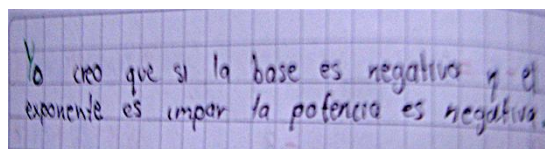 Yo creo que si la base es negativa y el
exponente es impar la potencia es negativa.